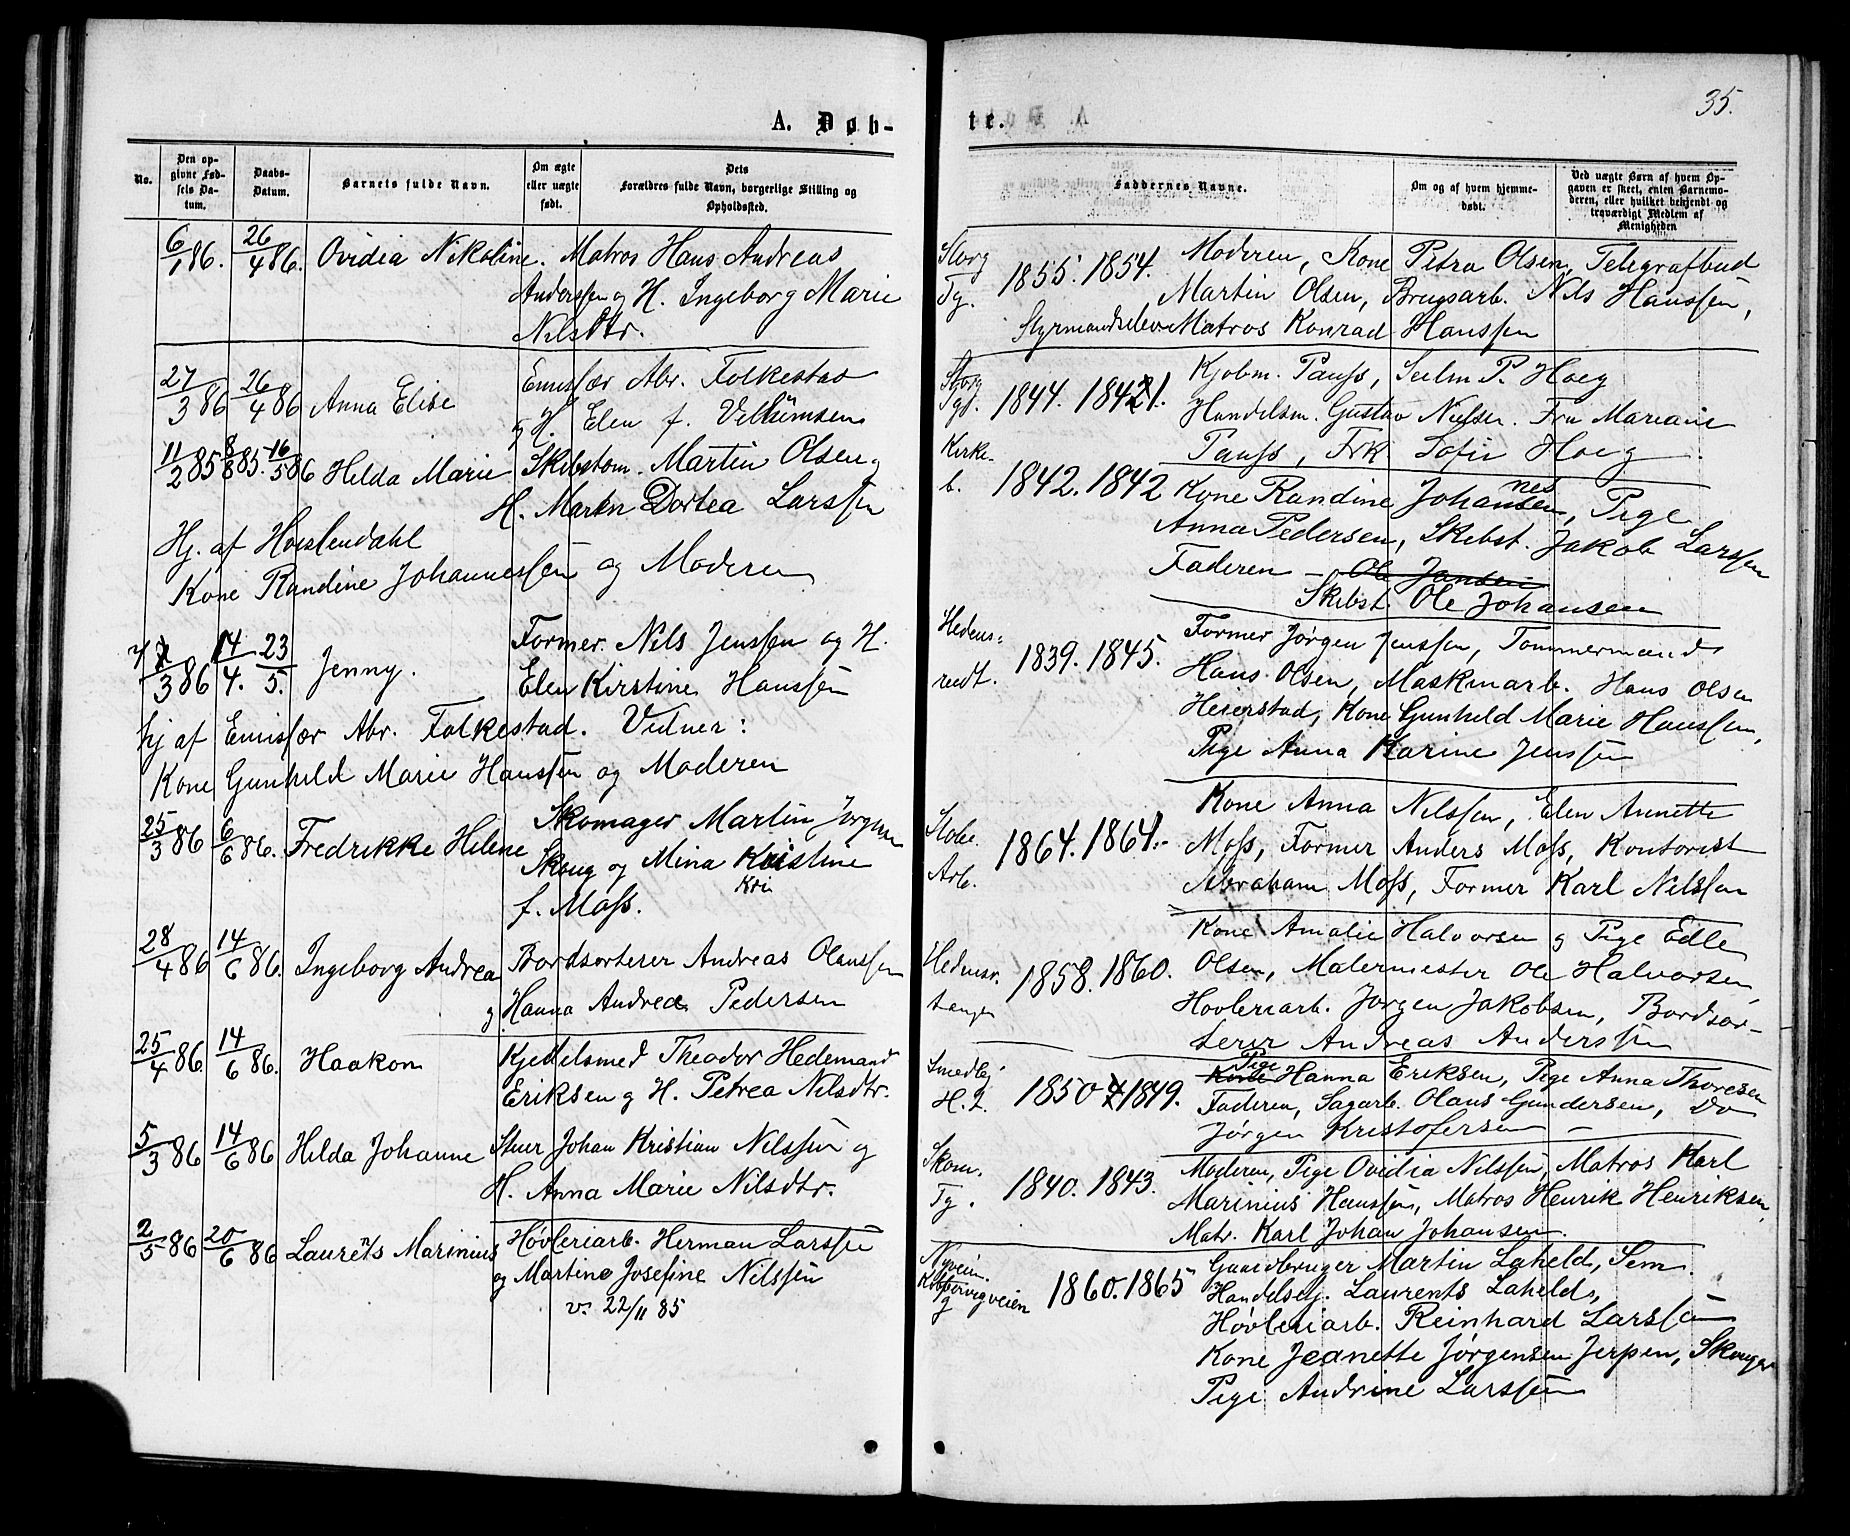 A. Døb-
No.
Den opgivne Fødsels Datum.
Daabs-Datum.
Barnets fulde Navn.
Om ægte eller uægte født.
Dets Forældres fulde Navn, borgerlige Stilling og Opholdssted.
6/1 86. 26/4 86. Ovidia Nikoline. Matros Hans Andreas
Anderssen og H. Ingeborg Marie
Nilsdtr.
27/3 86 26/4 86 Anna Elise Emisfær Abr. Folkestad
og H. Elen f. Velhumsen
11/2 85 8/8 85. 16/5 86 Helda Marie Skibstøm. Martin Olsen og
H. Maren Dortea Larssen
Hj. af Hoelfendahl
Kone Randine Johannessen og Moderen
7/3 86 14/4. 23/5. Jenny. Former. Nils Jenssen og H.
Elen Kirstine Hanssen
hj af Emisfær Abr. Folkestad. Vidner:
Kone Gunhild Marie Hanssen og Moderen
25/3 86 6/6 86. Fredrikke Helene Skomager Martin Jørgen
Skoug og Mina Kristine
Kri
f. Moss.
28/4 86 14/6 86. Ingeborg Andrea Bordsorterer Andreas Olaussen
og Hanna Andrea Pedersen
25/4 86 14/6 86. Haakon Kjedelsmed Theodor Hedemand
Eriksen og H. Petrea Nilsdtr.
5/3 86 14/6 86 Helda Johanne Stuer Johan Kristian Nilssen og
H. Anna Marie Nilsdtr.
2/5 86 20/6 86 Laurents Marinius Høvleriarb. Herman Larssen
og Martine Josefine Nilssen
v. 22/11 85
35.
te.
Faddernes Navne.
Om og af hvem hjemmedøbt.
Ved uægte Børn af hvem Opgaven er skeet, enten Barnemoderen, eller hvilket bekjendt og troværdigt Medlem af Menigheden
Storg 1855. 1854. Moderen, Kone Petra Olsen, Telegrafbud
Tg. Martin Olsen, Brugsarb. Nils Hanssen,
Styrmandselev Matros Konrad Hanssen
Storg 1844. 1841. Kjøbm. Pauss, P. Hoeg
Tgd. Handelsm. Gustav Nielsen. Fru Mariane
Pauss, Frk Sofie Hoeg
Kirkeb. 1842. 1842 Kone Randine Johannesen, Pige
Anna Pedersen, Skibst. Jakob Larssen
Faderen - Ole Jansen
Skibst. Ole Johansen
Hedensrudt. 1839. 1845. Former Jørgen Jenssen, Tømmermand
Hans Olsen, Maskinarb. Hans Olsen
Heierstad, Kone Gunhild Marie Hanssen,
Pige Anna Karine Jenssen
Arb. 1864. 1864.- Kone Anna Nilssen, Elen Annette
Moss, Former Anders Moss, Kontorist
Abraham Moss, Former Karl Nilssen
1858. 1860. Kone Amalie Halvorsen og Pige Edle
Olsen, Malermester Ole Halvorsen,
Høvleriarb. Jørgen Jakobsen, Bordsor-
terer Andreas Anderssen
Smedbj H. 2. 1850 1849. Pige Hanna Eriksen, Pige Anna Thoresen
Faderen, Sagarb. Olaus Gundersen, Do
Jørgen Kristofersen -
Skom. Tg. 1840. 1843. Moderen, Pige Ovidia Nilssen, Matros Karl
Marinius Hanssen, Matros Henrik Henriksen,
Matr. Karl Johan Johansen.
Nyveien. 1860. 1865 Gaardbruger Martin Laheld, Sem.
Handelsbj. Laurents Laheld,
Høvleriarb. Reinhard Larssen
Kone Jeanette Jørgensen Jerpen, Skouger
Pige Andrine Larssen